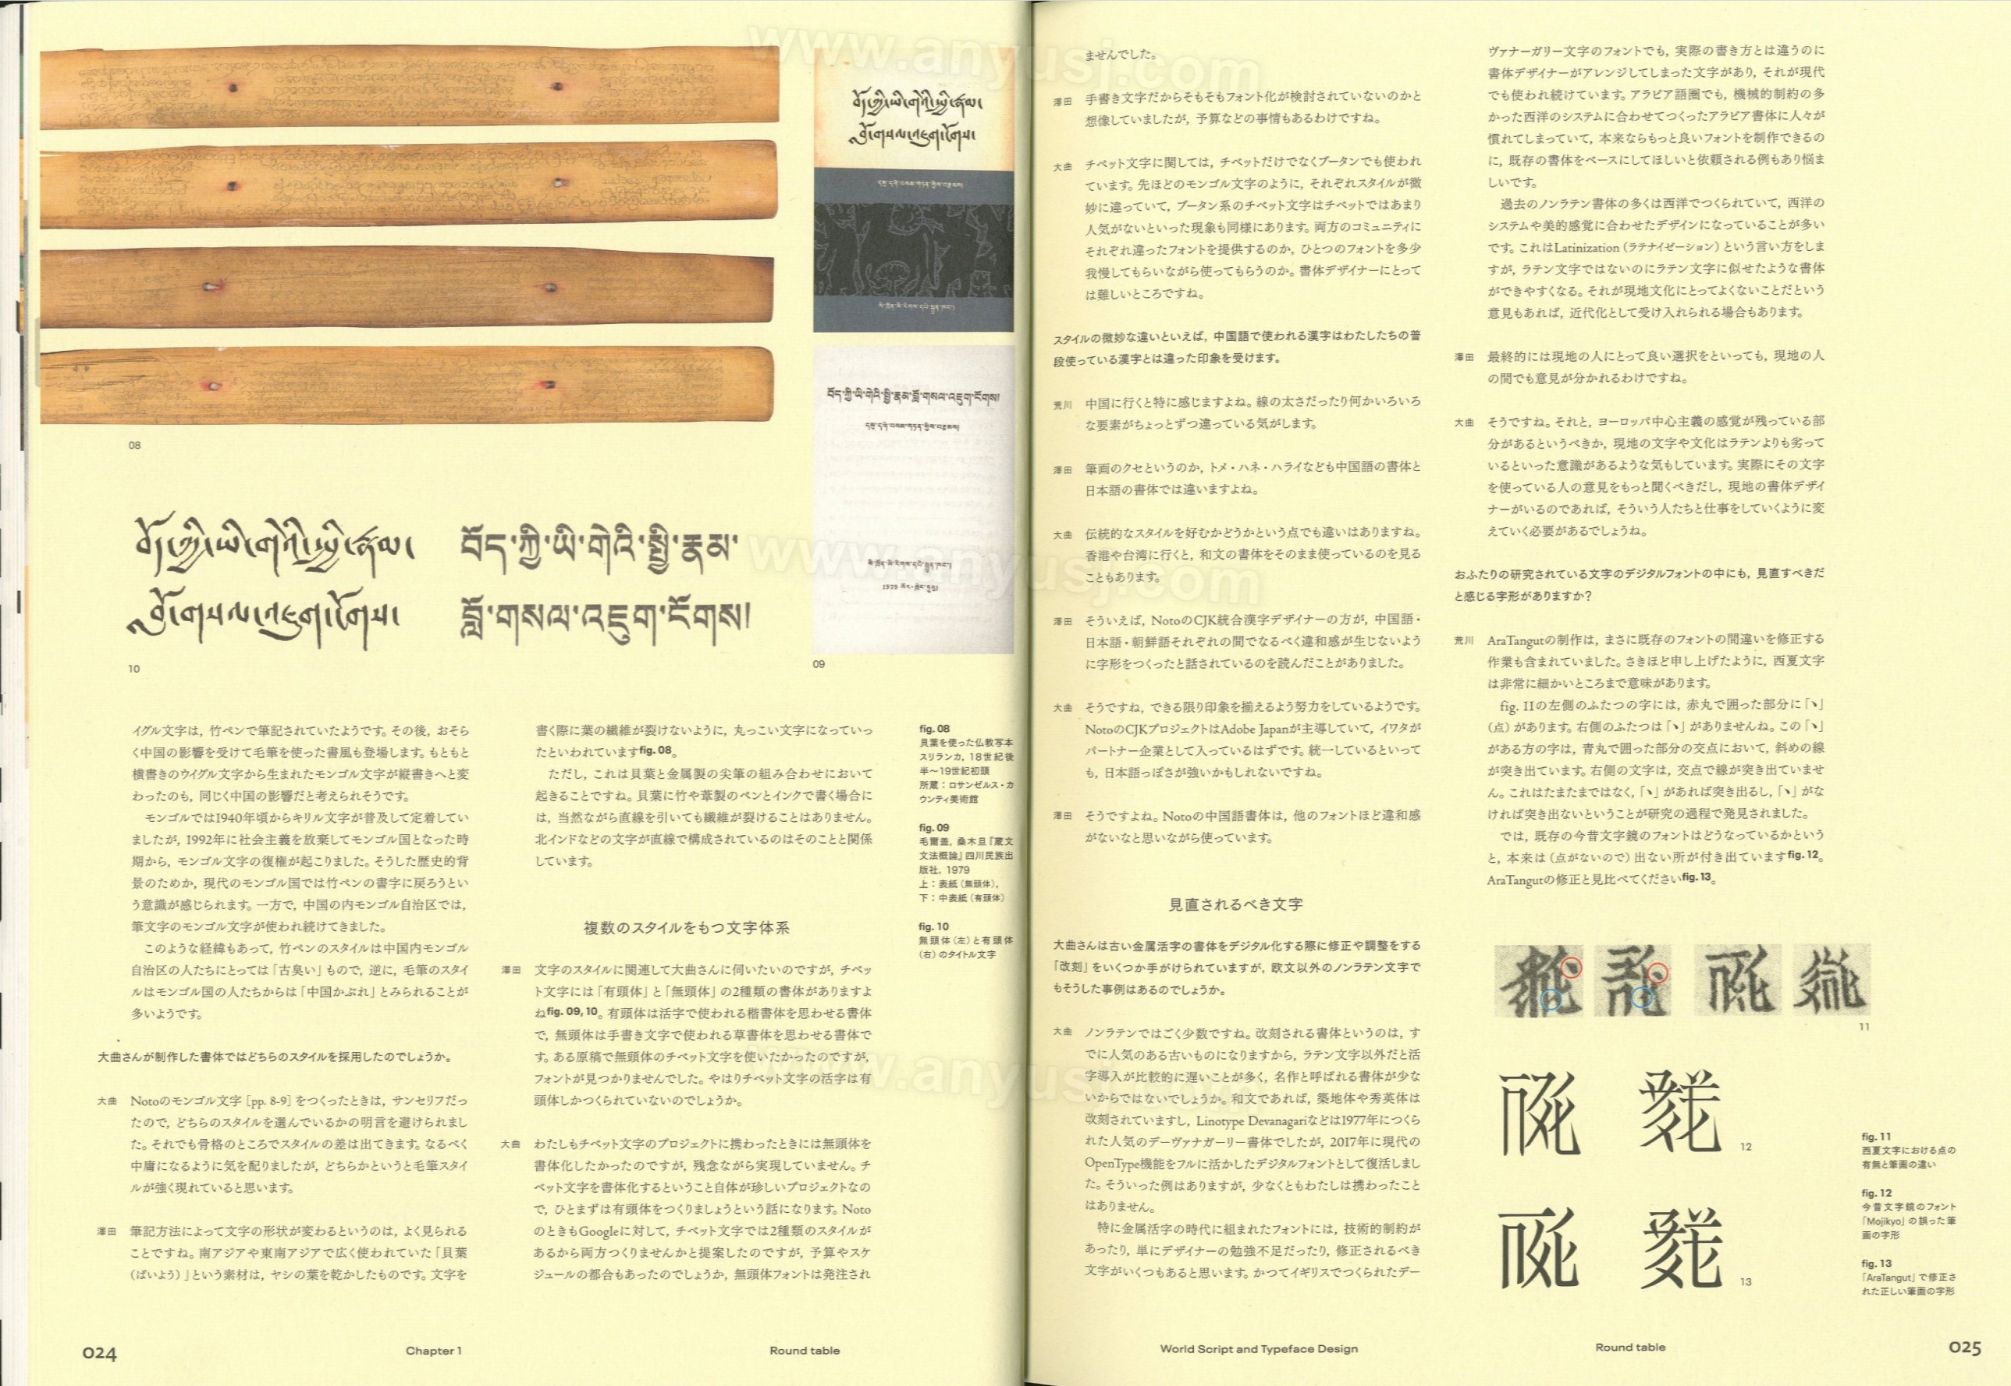 08
བོད་ཀྱི་ཡི་གེའི་སྤྱི་རྣམ་
བློ་གསལ་འཇུག་ངོགས།
10
09
イグル文字は，竹ペンで筆記されていたようです。その後，おそら
く中国の影響を受けて毛筆を使った書風も登場します。もともと
横書きのウイグル文字から生まれたモンゴル文字が縦書きへと変
わったのも，同じく中国の影響だと考えられそうです。
モンゴルでは1940年頃からキリル文字が普及して定着してい
ましたが，1992年に社会主義を放棄してモンゴル国となった時
期から，モンゴル文字の復権が起こりました。そうした歴史的背
景のためか，現代のモンゴル国では竹ペンの書字に戻ろうとい
う意識が感じられます。一方で，中国の内モンゴル自治区では，
筆文字のモンゴル文字が使われ続けてきました。
このような経緯もあって，竹ペンのスタイルは中国内モンゴル
自治区の人たちにとっては「古臭い」もので，逆に，毛筆のスタイ
ルはモンゴル国の人たちからは「中国かぶれ」とみられることが
多いようです。
大曲さんが制作した書体ではどちらのスタイルを採用したのでしょうか。
大曲 Notoのモンゴル文字［pp. 8-9］をつくったときは，サンセリフだっ
たので，どちらのスタイルを選んでいるかの明言を避けられまし
た。それでも骨格のところでスタイルの差は出てきます。なるべく
中庸になるように気を配りましたが，どちらかというと毛筆スタイ
ルが強く現れていると思います。
澤田 筆記方法によって文字の形状が変わるというのは，よく見られる
ことですね。南アジアや東南アジアで広く使われていた「貝葉
（ばいよう）」という素材は，ヤシの葉を乾かしたものです。文字を
書く際に葉の繊維が裂けないように，丸っこい文字になっていっ
たといわれていますfig. 08。
ただし，これは貝葉と金属製の尖筆の組み合わせにおいて
起きることですね。貝葉に竹や葦製のペンとインクで書く場合に
は，当然ながら直線を引いても繊維が裂けることはありません。
北インドなどの文字が直線で構成されているのはそのことと関係
しています。
複数のスタイルをもつ文字体系
澤田 文字のスタイルに関連して大曲さんに伺いたいのですが，チベッ
ト文字には「有頭体」と「無頭体」の2種類の書体がありますよ
ねfig. 09, 10。有頭体は活字で使われる楷書体を思わせる書体
で，無頭体は手書き文字で使われる草書体を思わせる書体で
す。ある原稿で無頭体のチベット文字を使いたかったのですが，
フォントが見つかりませんでした。やはりチベット文字の活字は有
頭体しかつくられていないのでしょうか。
大曲 わたしもチベット文字のプロジェクトに携わったときには無頭体を
書体化したかったのですが，残念ながら実現していません。チ
ベット文字を書体化するということ自体が珍しいプロジェクトなの
で，ひとまずは有頭体をつくりましょうという話になります。Noto
のときもGoogleに対して，チベット文字では2種類のスタイルが
あるから両方つくりませんかと提案したのですが，予算やスケ
ジュールの都合もあったのでしょうか，無頭体フォントは発注され
fig. 08
貝葉を使った仏教写本
スリランカ，18世紀後
半〜19世紀初頭
所蔵：ロサンゼルス・カ
ウンティ美術館
fig. 09
毛爾蓋，桑木旦『蔵文
文法概論』四川民族出
版社，1979
上：表紙（無頭体），
下：中表紙（有頭体）
fig. 10
無頭体（左）と有頭体
（右）のタイトル文字
024
Chapter 1
Round table
ませんでした。
澤田 手書き文字だからそもそもフォント化が検討されていないのかと
想像していましたが，予算などの事情もあるわけですね。
大曲 チベット文字に関しては，チベットだけでなくブータンでも使われ
ています。先ほどのモンゴル文字のように，それぞれスタイルが微
妙に違っていて，ブータン系のチベット文字はチベットではあまり
人気がないといった現象も同様にあります。両方のコミュニティに
それぞれ違ったフォントを提供するのか，ひとつのフォントを多少
我慢してもらいながら使ってもらうのか。書体デザイナーにとって
は難しいところですね。
スタイルの微妙な違いといえば，中国語で使われる漢字はわたしたちの普
段使っている漢字とは違った印象を受けます。
荒川 中国に行くと特に感じますよね。線の太さだったり何かいろいろ
な要素がちょっとずつ違っている気がします。
澤田 筆画のクセというのか，トメ・ハネ・ハライなども中国語の書体と
日本語の書体では違いますよね。
大曲 伝統的なスタイルを好むかどうかという点でも違いはありますね。
香港や台湾に行くと，和文の書体をそのまま使っているのを見る
こともあります。
澤田 そういえば，NotoのCJK統合漢字デザイナーの方が，中国語・
日本語・朝鮮語それぞれの間でなるべく違和感が生じないよう
に字形をつくったと話されているのを読んだことがありました。
大曲 そうですね，できる限り印象を揃えるよう努力をしているようです。
NotoのCJKプロジェクトはAdobe Japanが主導していて，イワタが
パートナー企業として入っているはずです。統一しているといって
も，日本語っぽさが強いかもしれないですね。
澤田 そうですよね。Notoの中国語書体は，他のフォントほど違和感
がないなと思いながら使っています。
見直されるべき文字
大曲さんは古い金属活字の書体をデジタル化する際に修正や調整をする
「改刻」をいくつか手がけられていますが，欧文以外のノンラテン文字で
もそうした事例はあるのでしょうか。
大曲 ノンラテンではごく少数ですね。改刻される書体というのは，す
でに人気のある古いものになりますから，ラテン文字以外だと活
字導入が比較的に遅いことが多く，名作と呼ばれる書体が少な
いからではないでしょうか。和文であれば，築地体や秀英体は
改刻されていますし，Linotype Devanagariなどは1977年につくら
れた人気のデーヴァナガーリー書体でしたが，2017年に現代の
OpenType機能をフルに活かしたデジタルフォントとして復活しまし
た。そういった例はありますが，少なくともわたしは携わったこと
はありません。
特に金属活字の時代に組まれたフォントには，技術的制約が
あったり，単にデザイナーの勉強不足だったり，修正されるべき
文字がいくつもあると思います。かつてイギリスでつくられたデー
ヴァナーガリー文字のフォントでも，実際の書き方とは違うのに
書体デザイナーがアレンジしてしまった文字があり，それが現代
でも使われ続けています。アラビア語圏でも，機械的制約の多
かった西洋のシステムに合わせてつくったアラビア書体に人々が
慣れてしまっていて，本来ならもっと良いフォントを制作できるの
に，既存の書体をベースにしてほしいと依頼される例もあり悩ま
しいです。
過去のノンラテン書体の多くは西洋でつくられていて，西洋の
システムや美的感覚に合わせたデザインになっていることが多い
です。これはLatinization（ラテナイゼーション）という言い方をしま
すが，ラテン文字ではないのにラテン文字に似せたような書体
ができやすくなる。それが現地文化にとってよくないことだという
意見もあれば，近代化として受け入れられる場合もあります。
澤田 最終的には現地の人にとって良い選択をといっても，現地の人
の間でも意見が分かれるわけですね。
大曲 そうですね。それと，ヨーロッパ中心主義の感覚が残っている部
分があるというべきか，現地の文字や文化はラテンよりも劣って
いるといった意識があるような気もしています。実際にその文字
を使っている人の意見をもっと聞くべきだし，現地の書体デザイ
ナーがいるのであれば，そういう人たちと仕事をしていくように変
えていく必要があるでしょうね。
おふたりの研究されている文字のデジタルフォントの中にも，見直すべきだ
と感じる字形がありますか？
荒川 AraTangutの制作は，まさに既存のフォントの間違いを修正する
作業も含まれていました。さきほど申し上げたように，西夏文字
は非常に細かいところまで意味があります。
fig. 11の左側のふたつの字には，赤丸で囲った部分に「丶」
（点）があります。右側のふたつは「丶」がありませんね。この「丶」
がある方の字は，青丸で囲った部分の交点において，斜めの線
が突き出ています。右側の文字は，交点で線が突き出ていませ
ん。これはたまたまではなく，「丶」があれば突き出るし，「丶」がな
ければ突き出ないということが研究の過程で発見されました。
では，既存の今昔文字鏡のフォントはどうなっているかという
と，本来は（点がないので）出ない所が付き出ていますfig. 12。
AraTangutの修正と見比べてくださいfig. 13。
11
12
13
fig. 11
西夏文字における点の
有無と筆画の違い
fig. 12
今昔文字鏡のフォント
「Mojikyo」の誤った筆
画の字形
fig. 13
「AraTangut」で修正さ
れた正しい筆画の字形
World Script and Typeface Design
Round table
025
www.anyusj.com
www.anyusj.com
www.anyusj.com